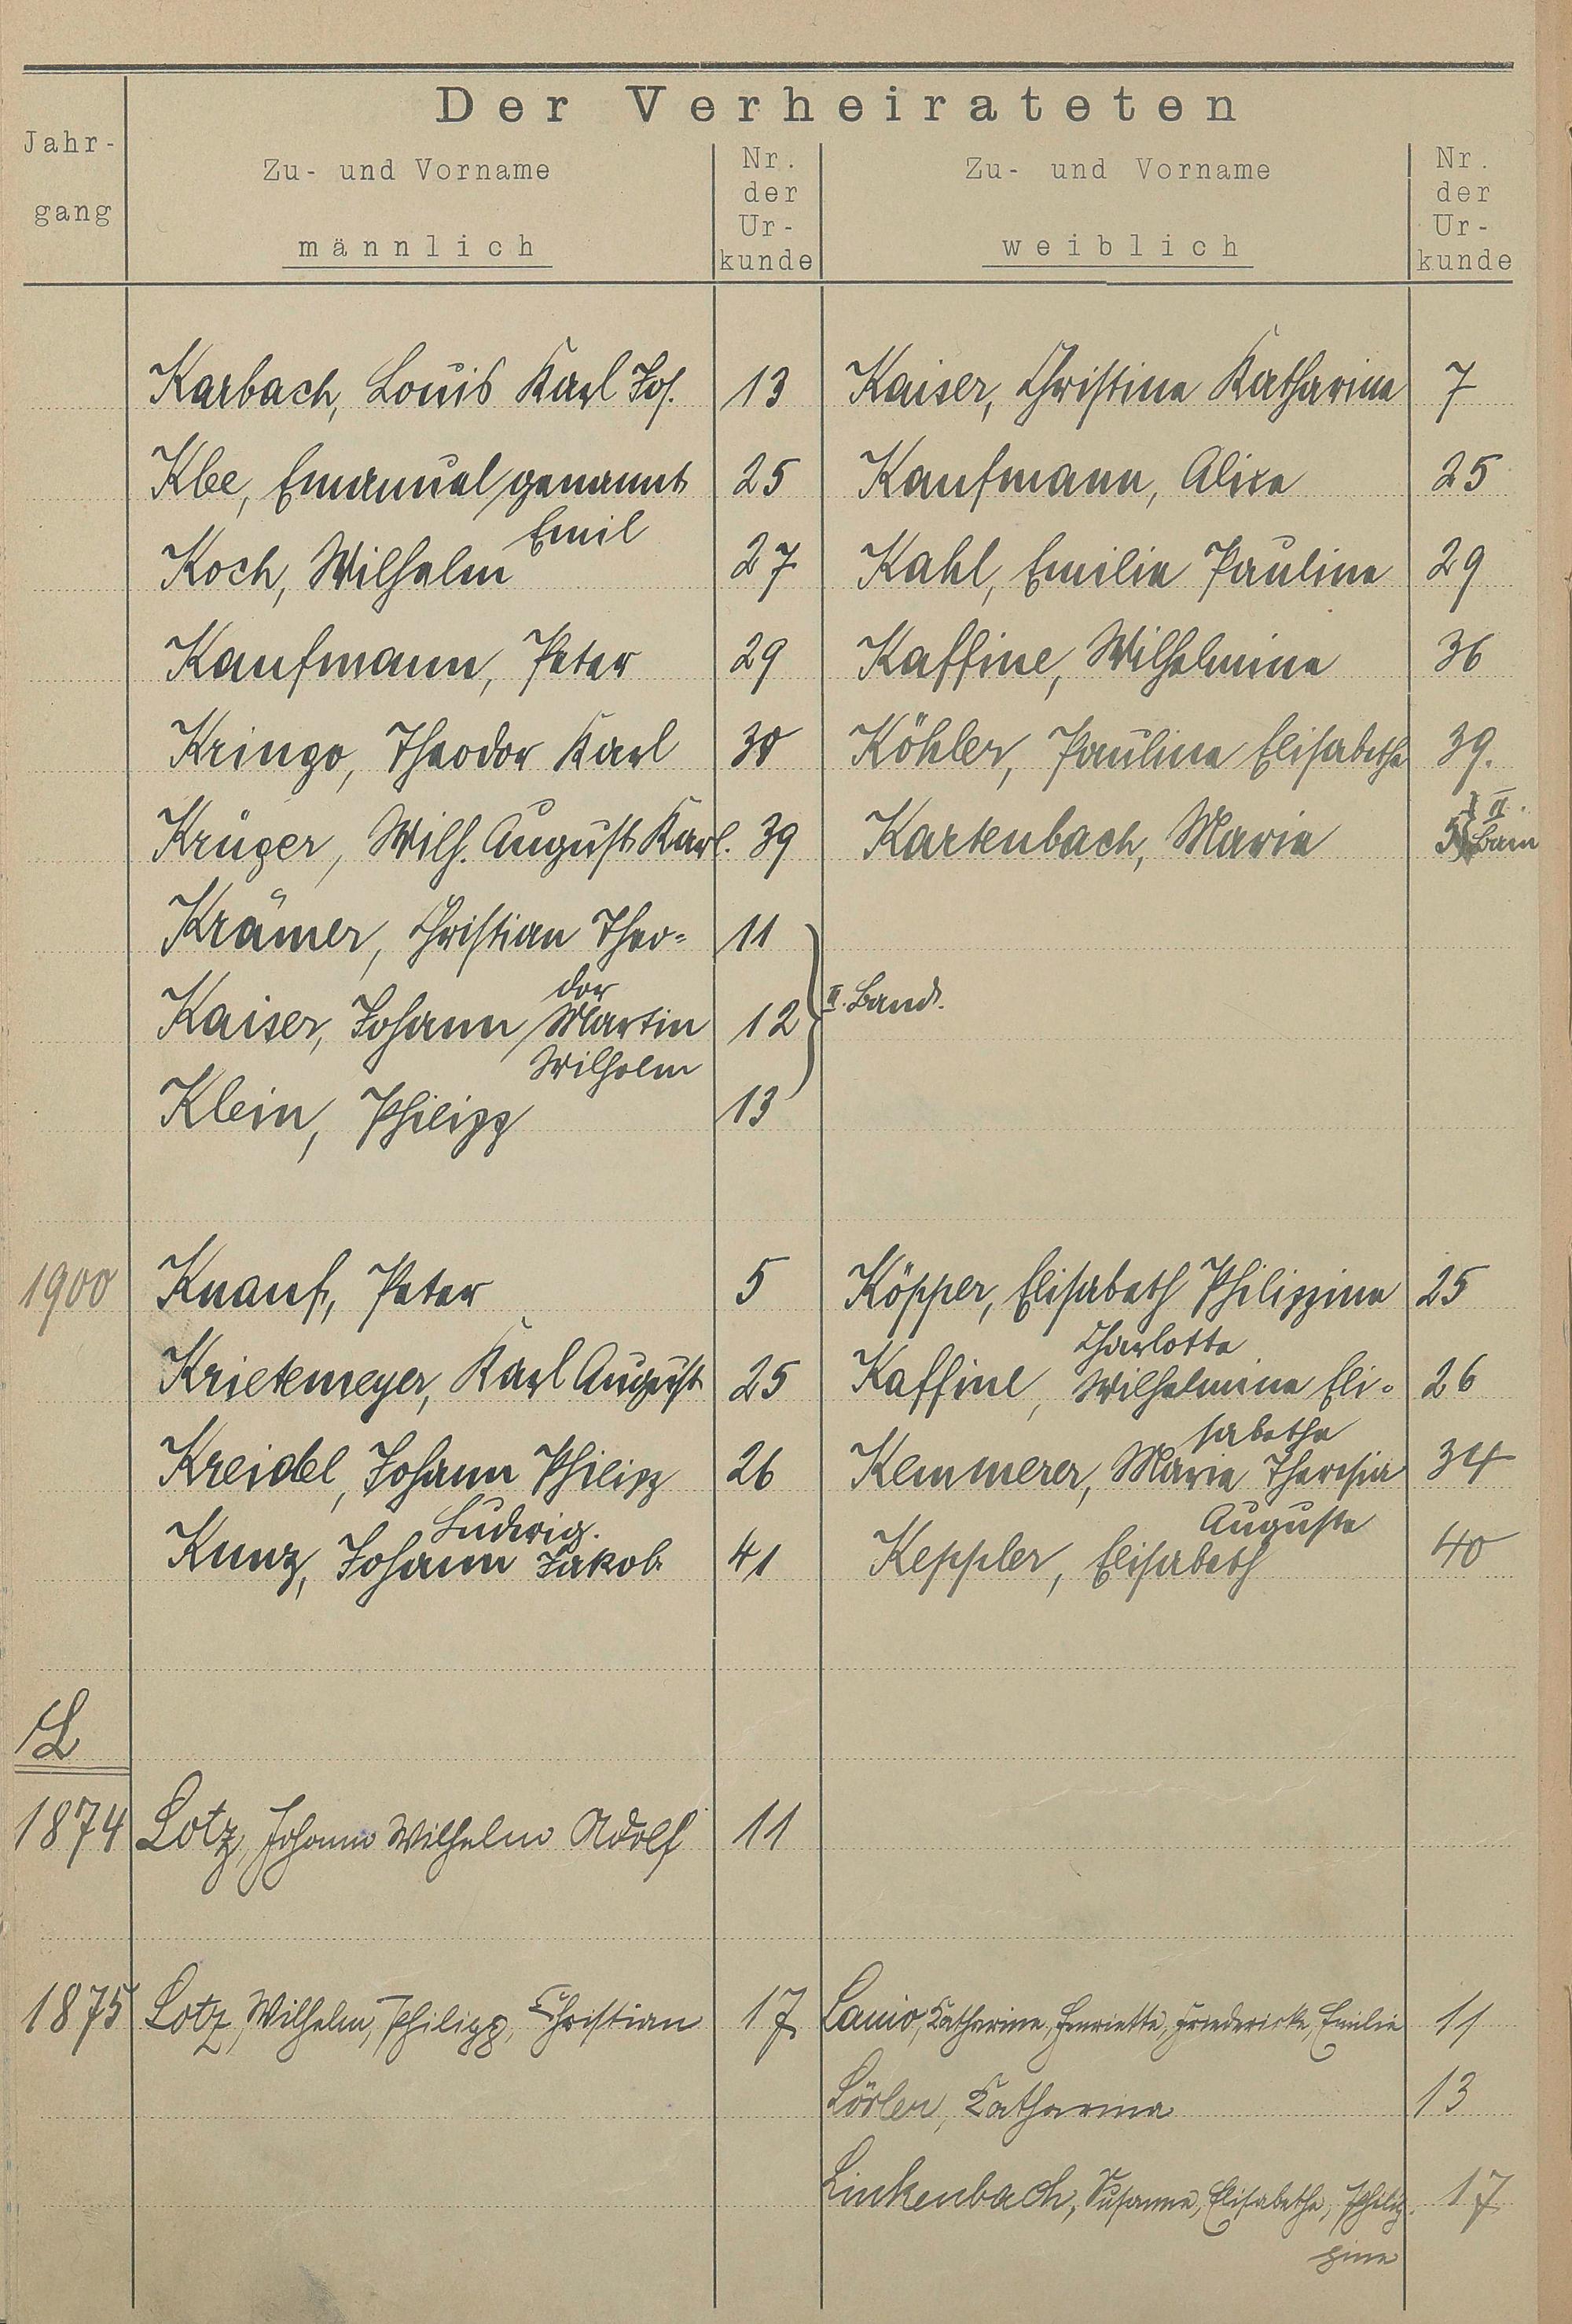 Der Verheirateten
Jahr-
gang
Zu- und Vorname
männlich
Nr.
der
Ur-
kunde
Zu- und Vorname
weiblich
Nr.
der
Ur-
kunde
Karbach, Louis Karl Jos. 13 Kaiser, Christine Katharine 7
Klee, Emanuel genannt 25 Kaufmann, Alice 25
Emil
Koch, Wilhelm 27 Kahl, Emilie Pauline 29
Kaufmann, Peter 29 Kaffine, Wilhelmine 36
Kringo, Theodor Karl 30 Köhler, Pauline Elisabethe 39.
II.
Krüger, Wilh. August Karl. 39 Kartenbach, Marie 5 Ban
Krämer, Christian Theo= 11
dor
II. Band.
Kaiser, Johann Martin 12
Wilhelm
Klein, Philipp 13
1900 Knauf, Peter 5 Köpper, Elisabeth Philippine 25
Charlotte
Krietemeyer, Karl August 25 Kaffine, Wilhelmine Eli= 26
sabethe
Kreidel, Johann Philipp 26 Kemmerer, Marie Theresia 34
Ludwig. Auguste
Kunz, Johann Jakob 41 Keppler, Elisabeth 40
L
1874 Lotz, Johann Wilhelm Adolf 11
1875 Lotz, Wilhelm, Philipp, Christian 17 Lanio, Katharine, Henriette, Friedericke, Emilie 11
Lösler, Katharina 13
Linkenbach, Susanne, Elisabethe, Philip 17
pine